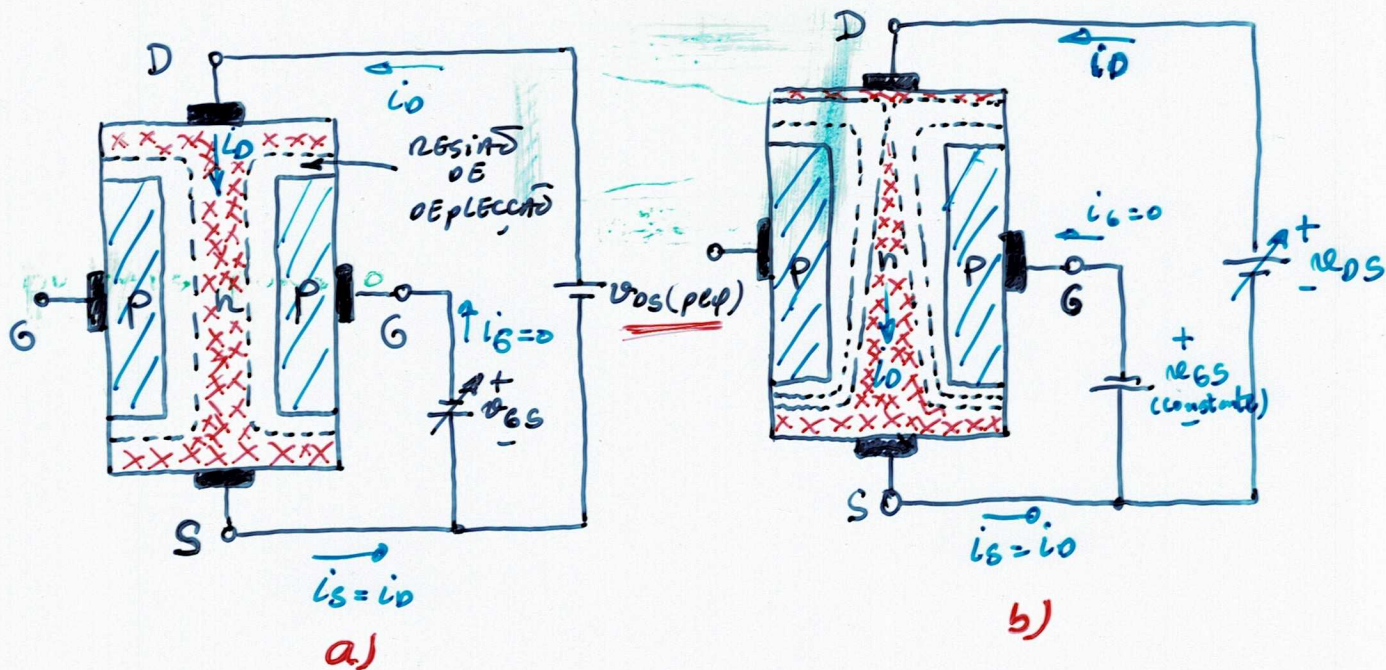 D
iD
iD
REGIÃO
DE
DEPLECÇÃO
P
n
P
G
G
iG=0
+
vGS
-
vDS(peq)
S
iS=iD
a)
D
iD
P
n
P
iG=0
G
+
vDS
-
+
vGS
(constante)
-
iD
S
iS=iD
b)